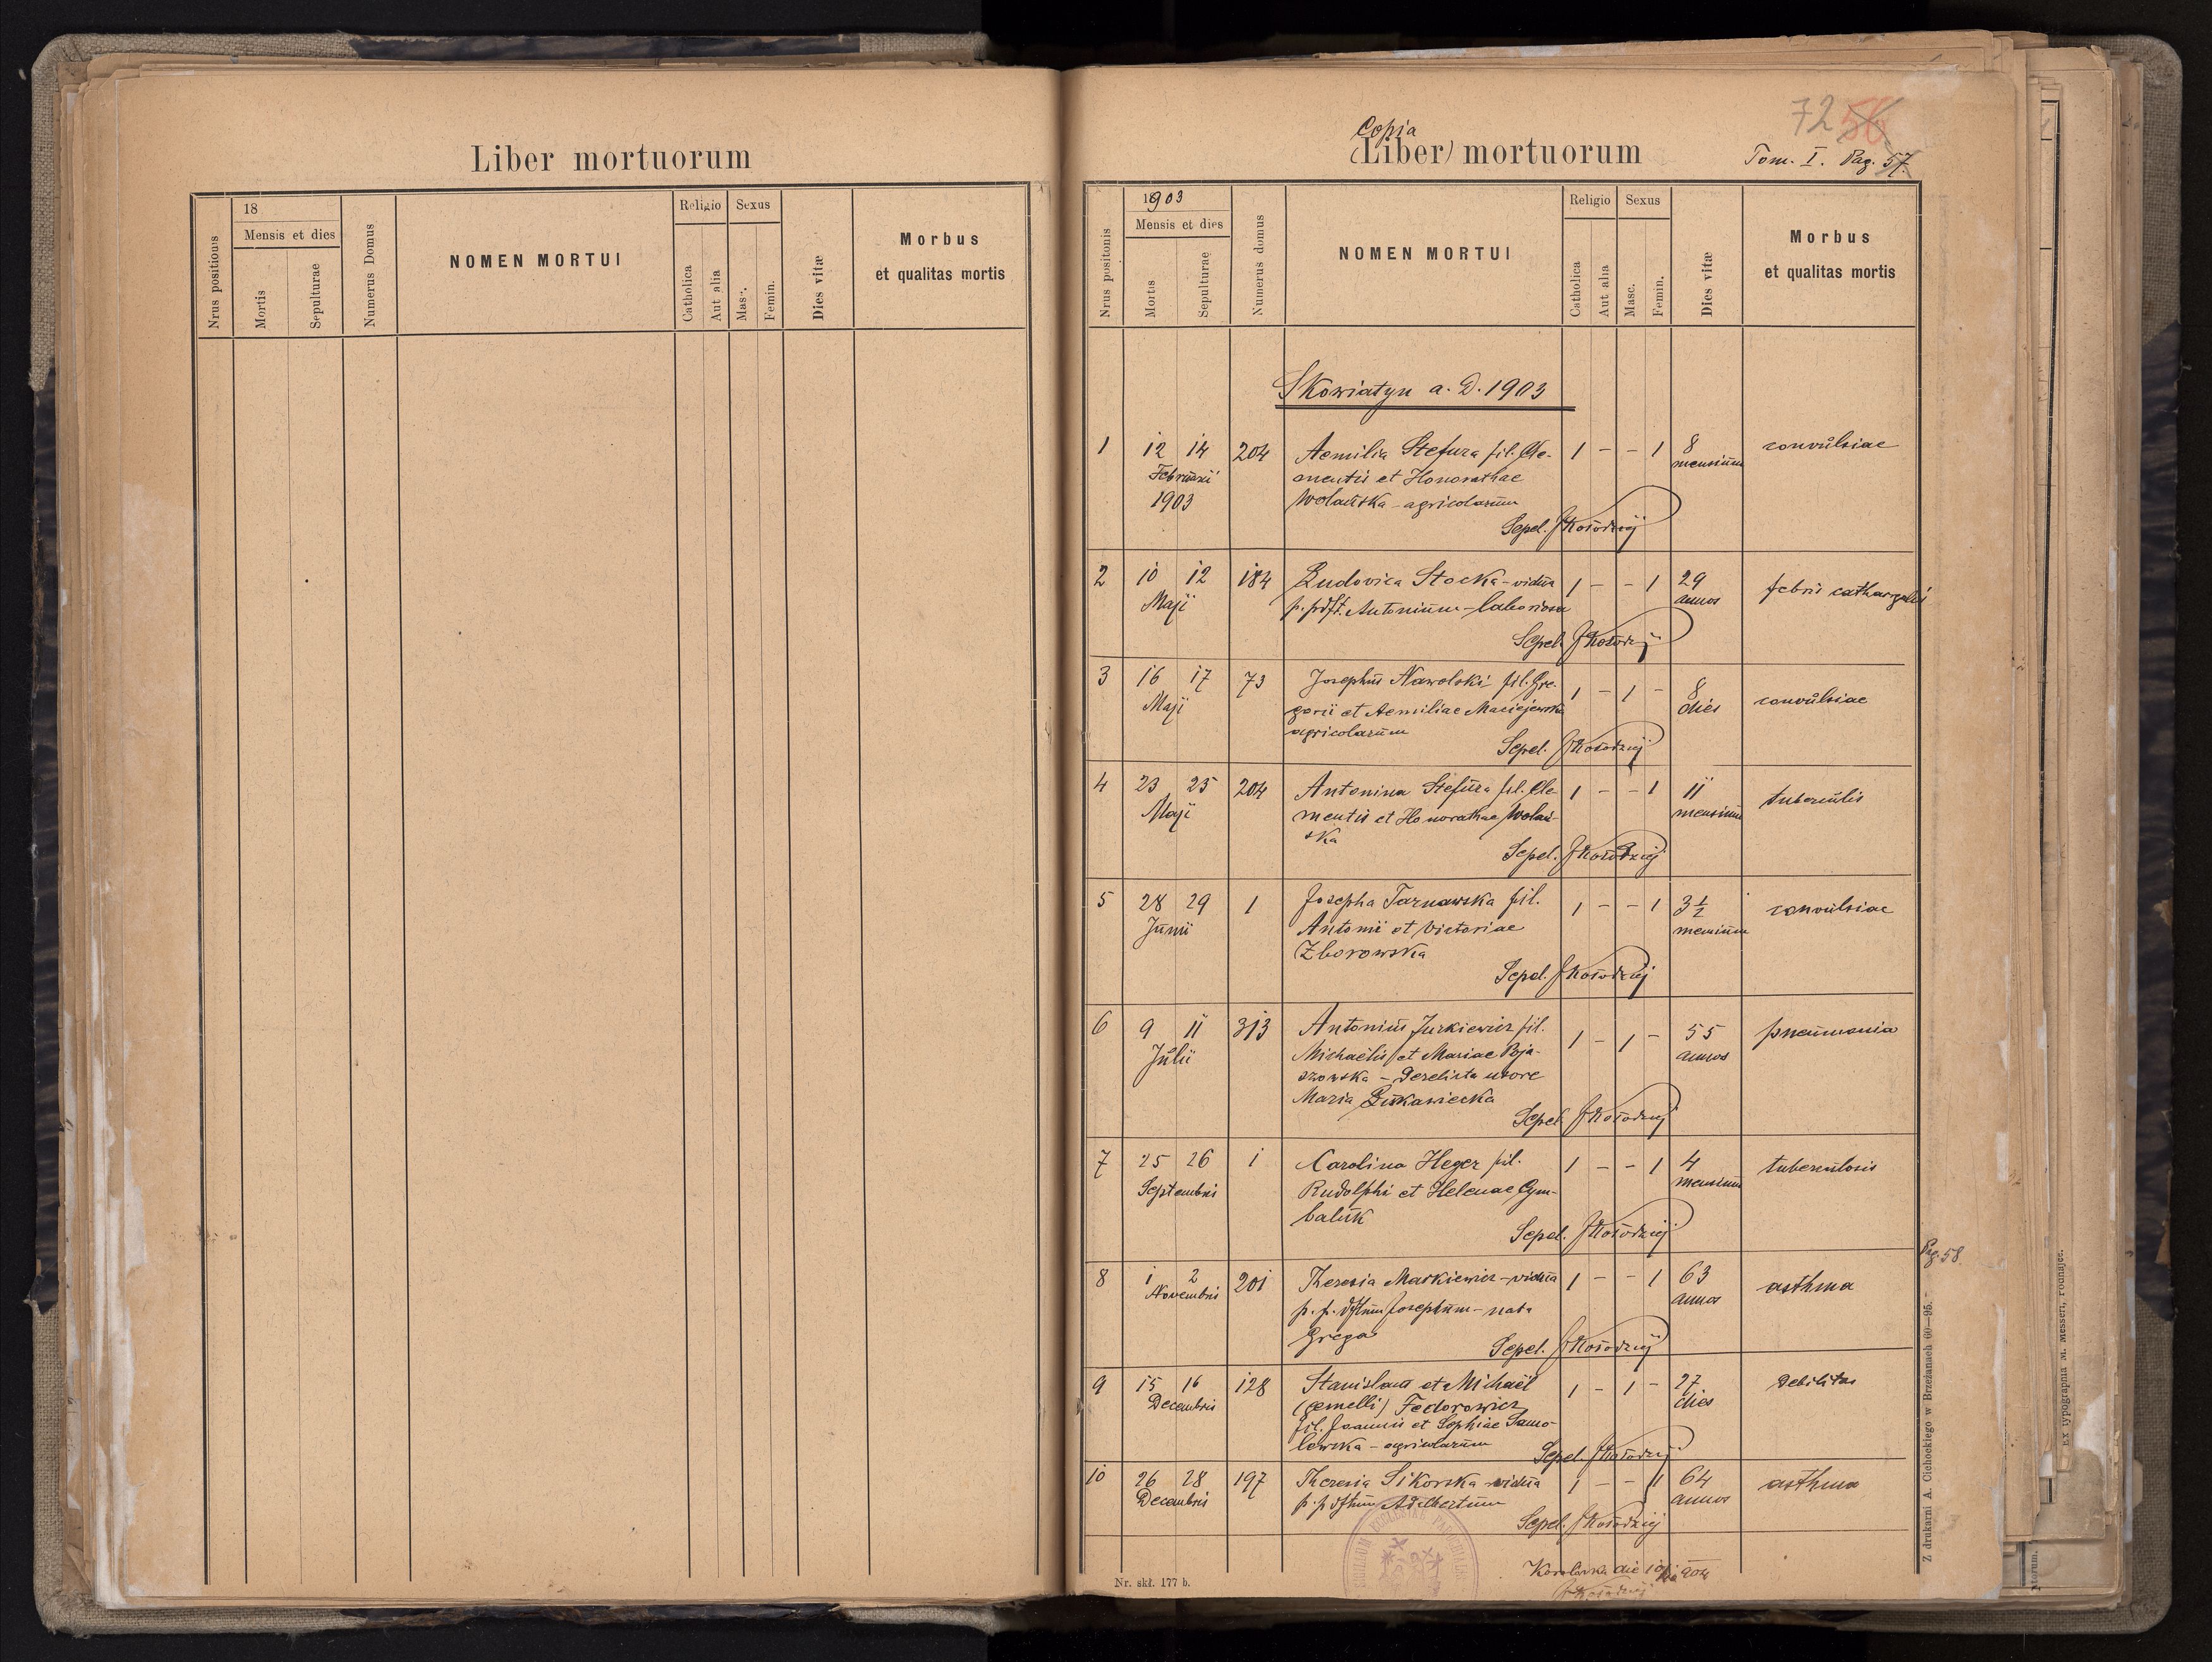 Liber mortuorum
Nrus positionis
18
Mensis et dies
Mortis
Sepulturae
Numerus Domus
NOMEN MORTUI
Religio
Catholica
Aut alia
Sexus
Masc.
Femin.
Dies vitæ
Morbus
et qualitas mortis
72 56
Copia
(Liber) mortuorum
Tom. I. Pag. 57.
Nrus positonis
1903
Mensis et dies
Mortis
Sepulturae
Numerus domus
NOMEN MORTUI
Religio
Catholica
Aut alia
Sexus
Masc.
Femin.
Dies vitæ
Morbus
et qualitas mortis
Skowiatyn a. D. 1903
1 12 14 204 Aemilia Stefura fil. Cle- 1 – – 1 8 convulsiae
Februarii mentis et Honorathae mensium
1903 Wolańska – agricolarum
Sepel. JKołodziej
2 10 12 184 Ludovica Stocka – vidua 1 – – 1 29 febris
Maji p. pdft. Antonium – laboriosa annos
Sepel. JKołodziej
3 16 17 73 Josephus Nawolski fil. Gre- 1 – 1 – 8 convulsiae
Maji gorii et Aemiliae Maciejewska dies
agricolarum
Sepel. JKołodziej
4 23 25 204 Antonina Stefura fil. Cle- 1 – – 1 11 tuberculis
Maji mentis et Honorathae Wolań- mensium
ska
Sepel. JKołodziej
5 28 29 1 Josepha Tarnawska fil. 1 – – 1 3 1/2 convulsiae
Junii Antonii et Victoriae mensium
Zborowska
Sepel. JKołodziej
6 9 11 313 Antonius Jurkiewicz fil. 1 – 1 – 55 pneumonia
Julii Michaëlis et Mariae Boja- annos
szowska – Derelicta uxore
Maria Lukawiecka
Sepel. JKołodziej
7 25 26 1 Carolina Heger fil. 1 – – 1 4 tuberculosis
Septembris Rudolphi et Helenae Cym- mensium
baluk
Sepel. JKołodziej
8 1 2 201 Theresia Markiewicz – vidua 1 – – 1 63 asthma
Novembris p. p. dftum Josephum – nata annos
Gregas
Sepel. JKołodziej
Pag. 58.
9 15 16 128 Stanislaus et Michaël 1 – 1 – 27 Debilitas
Decembris (gemelli) Fedorowicz dies
fil. Joannis et Sophiae Samo-
lewska – agricolarum
Sepel. JKołodziej
10 26 28 197 Theresia Sikorska – vidua 1 – – 1 64 asthma
Decembris p. p dftum Adalbertum annos
Sepel. JKołodziej
SIGILLUM ECCLESIAE PAROCHIALIS
Korolówka die
JKołodziej
Nr. skł. 177 b.
Z drukarni A. Cichockiego w Brzeżanach 60—95.
Ex typographia M. Messeri,